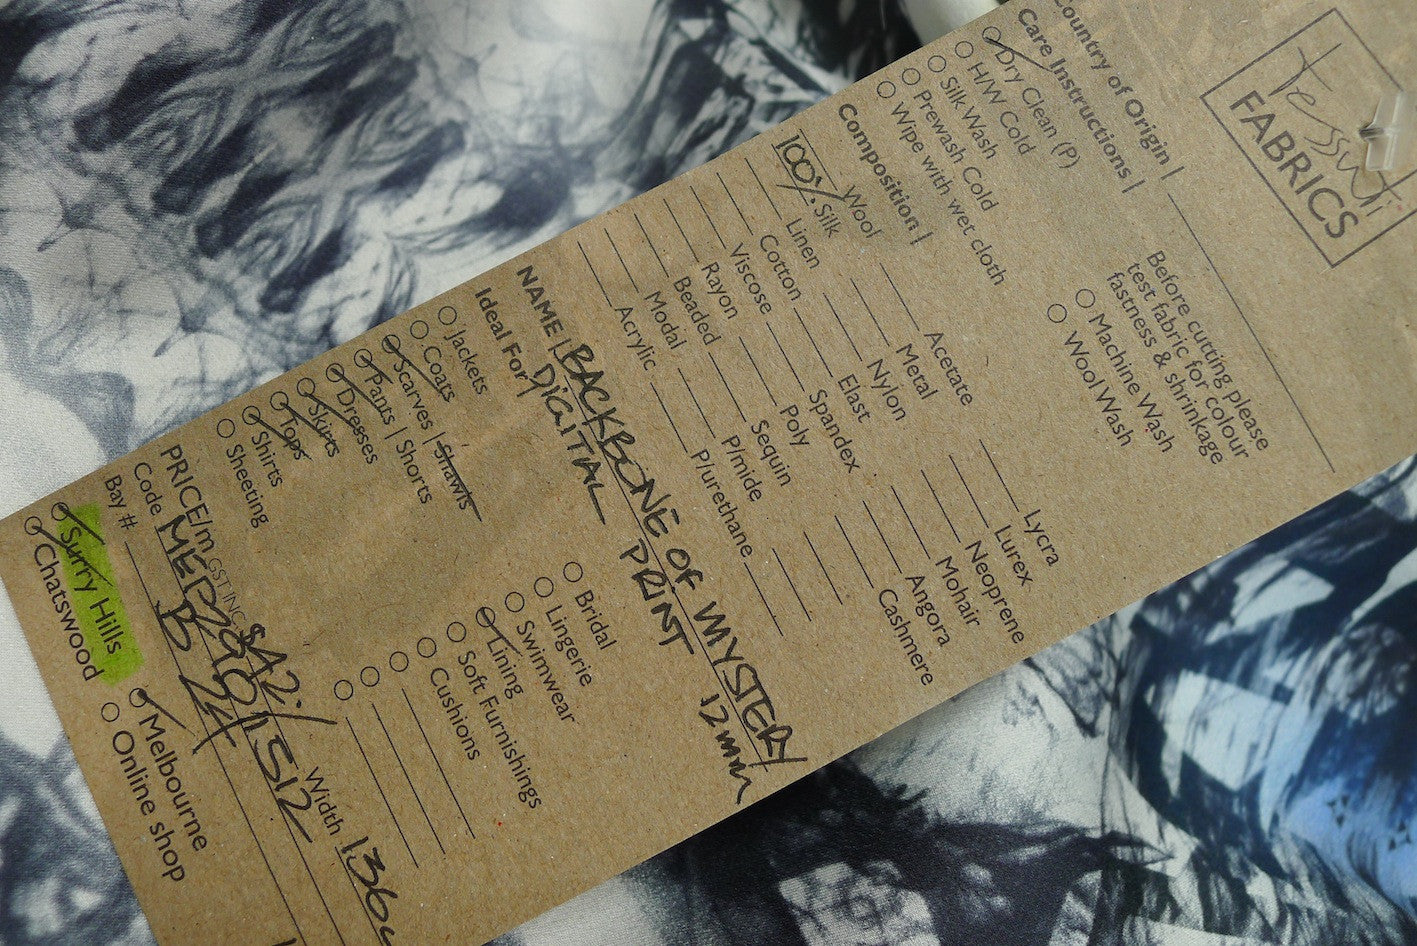 Tessuti
FABRICS
Country of Origin |
Care Instructions |
Dry Clean (P)
H/W Cold
Silk Wash
Prewash Cold
Wipe with wet cloth
Before cutting please
test fabric for colour
fastness & shrinkage
Machine Wash
Wool Wash
Composition |
Wool
100% Silk
Linen
Cotton
Viscose
Rayon
Beaded
Modal
Acrylic
Acetate
Metal
Nylon
Elast
Spandex
Poly
Sequin
P/mide
P/urethane
Lycra
Lurex
Neoprene
Mohair
Angora
Cashmere
NAME | BACKBONE OF MYSTERY
DIGITIAL PRINT 12mm
Ideal For
Jackets
Coats
Scarves | Shawls
Pants | Shorts
Dresses
Skirts
Tops
Shirts
Sheeting
Bridal
Lingerie
Swimwear
Lining
Soft Furnishings
Cushions
PRICE/m GST INC $42.
Width 136
Code
Bay # B
Surry Hills
Chatswood
Melbourne
Online shop